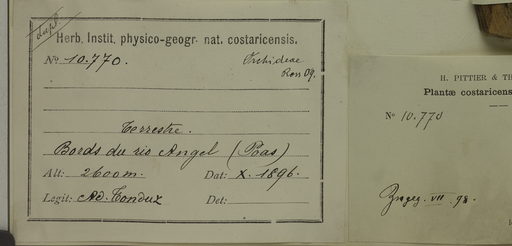 dupl.
Herb. Instit. physico-geogr. nat. costaricensis.
No 10.770.
Orchideae
Terrestre.
Bords du rio Angel (Poas)
Alt: 2600m. Dat: X. 1896.
Legit: Ad. Tonduz Det:
H. PITTIER & TH
Plantæ costaricens
No 10.770
VII 98.